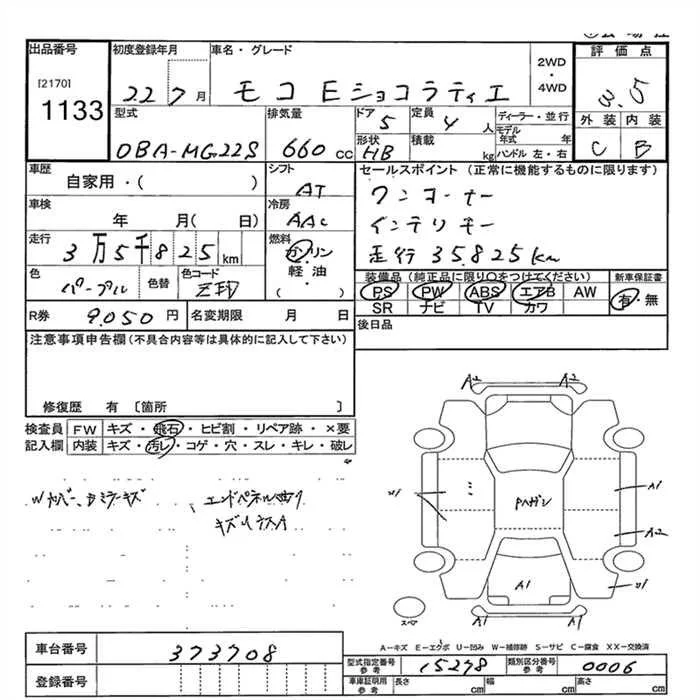 出品番号
[2170]
1133
初度登録年月
22 7月
車名・グレード
モコ Eショコラティエ
2WD
・
4WD
評価点
3.5
外装 内装
C B
型式
DBA-MG22S
排気量
660cc
ドア
5
定員
4人
形状
HB
積載
kg
ディーラー・並行
モデル年式 年
ハンドル 左・右
車歴
自家用・( )
シフト
AT
車検
年 月( 日)
冷房
AAC
走行
3万5千825km
燃料
ガソリン
・
軽・油
( )
色
パープル
色替
色コード
R券 9,050円
名変期限 月 日
セールスポイント (正常に機能するものに限ります)
ワンオーナー
インテリキー
走行 35,825km
装備品(純正品に限り○をつけてください)
PS PW ABS エアB AW
SR ナビ TV カワ
新車保証書
有・無
後日品
注意事項申告欄(不具合内容等は具体的に記入して下さい)
修復歴 有〔箇所 〕
検査員記入欄
FW キズ・飛石・ヒビ割・リペア跡・×要
内装 キズ・汚レ・コゲ・穴・スレ・キレ・破レ
Wカバー、ミラーキズ
エンドパネル曲リ
A2 A2
A1
A2
Pヘガシ
A1
スペア
A-キズ E-エクボ U-凹み W-補修跡 S-サビ C-腐食 XX-交換済
車台番号
373708
登録番号
型式指定番号 参考
15278
類別区分番号 参考
0006
車庫証明用 参考
長さ cm
幅 cm
高さ cm